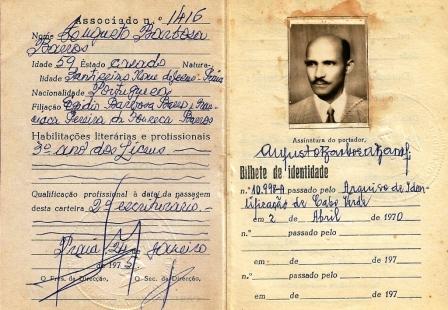 Associado n.º 1416
Nome Augusto Barbosa
Barros
Idade 59 Estado casado Natura-
lidade Santíssimo Nome de Jesus - Praia
Nacionalidade Portuguesa
Filiação Egídio Barbosa Barros e
Pereira da Fonseca Barros
Habilitações literárias e profissionais
3º ano dos Liceus
Qualificação profissional à data da passagem
desta carteira 2º escriturário.
Praia 24 Janeiro
de 1975
O Pres. da Direcção, O Sec. da Direcção,
Assinatura do portador,
Augusto Barbosa Barros
Bilhete de identidade
n.º 10.998-A passado pelo Arquivo de Iden-
tificação de Cabo Verde
em 2 de Abril de 1970
n.º passado pelo
em de de 197
n.º passado pelo
em de de 197